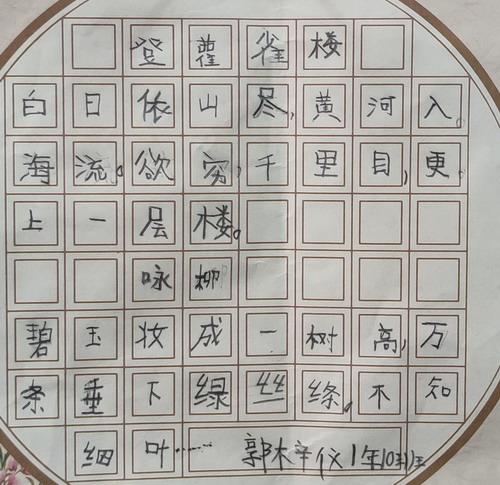 登鹳雀楼
白日依山尽,黄河入。
海流。欲穷,千里目,更。
上一层楼。
咏柳
碧玉妆成一树高,万
条垂下绿丝绦,不知
细叶…… 郭木辛仪1年10班